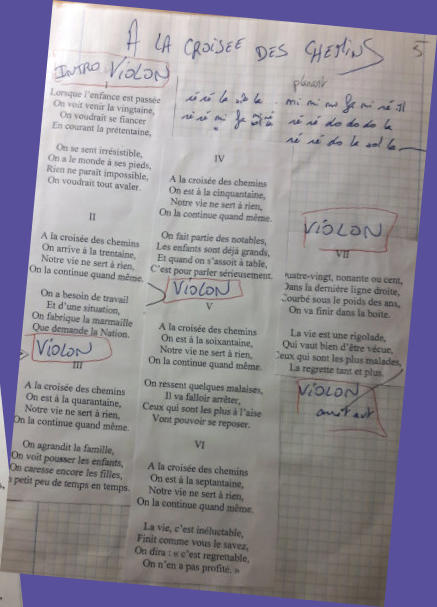 A LA CROISEE DES CHEMINS
5
INTRO VIOLON
planant
ré ré la sib la
mi mi mi fa mi ré
ré ré mi fa
ré ré do do do la
ré ré do la sol la
Lorsque l'enfance est passée
On voit venir la vingtaine,
On voudrait se fiancer
En courant la prétentaine,
On se sent irrésistible,
On a le monde à ses pieds,
Rien ne paraît impossible,
On voudrait tout avaler.
II
A la croisée des chemins
On arrive à la trentaine,
Notre vie ne sert à rien,
On la continue quand même.
On a besoin de travail
Et d'une situation,
On fabrique la marmaille
Que demande la Nation.
VIOLON
III
A la croisée des chemins
On est à la quarantaine,
Notre vie ne sert à rien,
On la continue quand même.
On agrandit la famille,
On voit pousser les enfants,
On caresse encore les filles,
petit peu de temps en temps.
IV
A la croisée des chemins
On est à la cinquantaine,
Notre vie ne sert à rien,
On la continue quand même.
On fait partie des notables,
Les enfants sont déjà grands,
Et quand on s'assoit à table,
C'est pour parler sérieusement.
VIOLON
V
A la croisée des chemins
On est à la soixantaine,
Notre vie ne sert à rien,
On la continue quand même.
On ressent quelques malaises,
Il va falloir arrêter,
Ceux qui sont les plus à l'aise
Vont pouvoir se reposer.
VI
A la croisée des chemins
On est à la septantaine,
Notre vie ne sert à rien,
On la continue quand même.
La vie, c'est inéluctable,
Finit comme vous le savez,
On dira : « c'est regrettable,
On n'en a pas profité. »
VIOLON
VII
uatre-vingt, nonante ou cent,
Dans la dernière ligne droite,
Courbé sous le poids des ans,
On va finir dans la boite.
La vie est une rigolade,
Qui vaut bien d'être vécue,
Ceux qui sont les plus malades,
La regrette tant et plus.
VIOLON